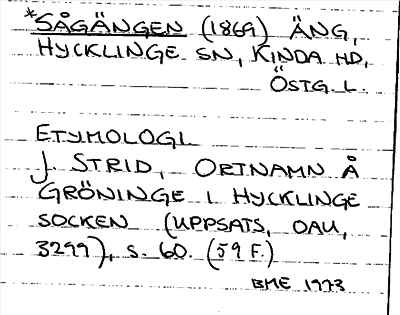 *SÅGÄNGEN (1869) ÄNG,
HYCKLINGE SN, KINDA HD,
ÖSTG. L.
ETYMOLOGI
J. STRID, ORTNAMN Å
GRÖNINGE I HYCKLINGE
SOCKEN (UPPSATS, OAU,
3299), S. 60. (59 F.)
BME 1973